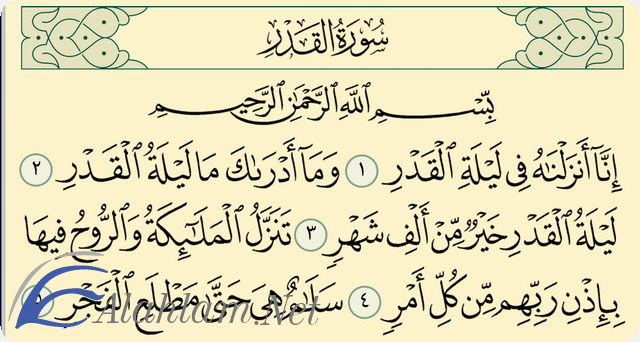 سُورَةُ القَدْرِ
بِّسْمِ ٱللَّهِ ٱلرَّحْمَٰنِ ٱلرَّحِيمِ
إِنَّآ أَنزَلْنَٰهُ فِى لَيْلَةِ ٱلْقَدْرِ ١ وَمَآ أَدْرَىٰكَ مَا لَيْلَةُ ٱلْقَدْرِ ٢
لَيْلَةُ ٱلْقَدْرِ خَيْرٌ مِّنْ أَلْفِ شَهْرٍ ٣ تَنَزَّلُ ٱلْمَلَٰٓئِكَةُ وَٱلرُّوحُ فِيهَا
بِإِذْنِ رَبِّهِم مِّن كُلِّ أَمْرٍ ٤ سَلَٰمٌ هِىَ حَتَّىٰ مَطْلَعِ ٱلْفَجْرِ ٥
Alahlam.Net